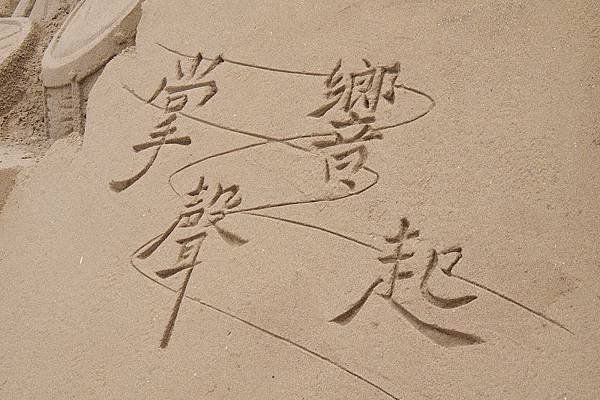 掌聲
響起